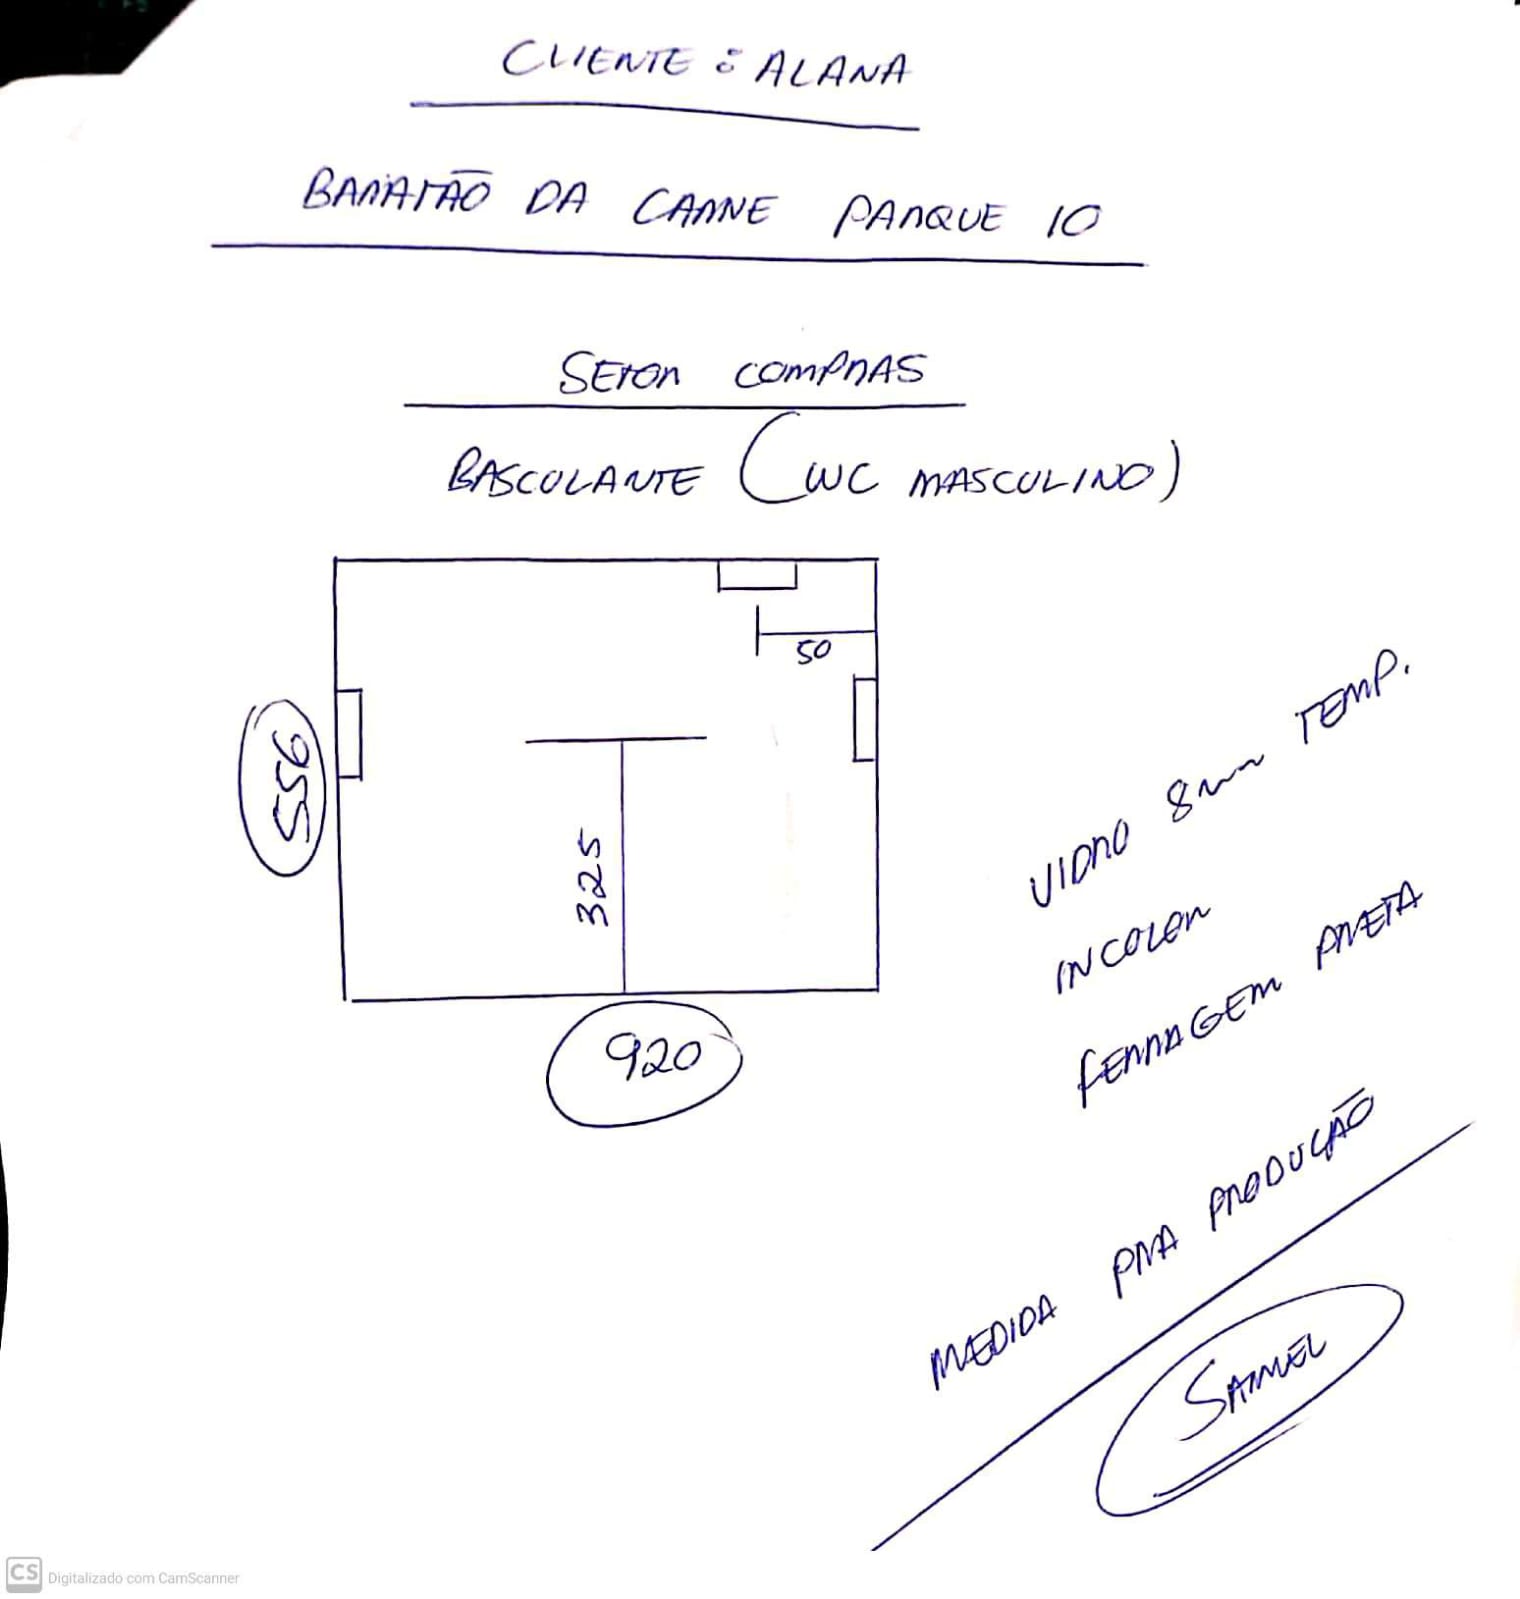 CLIENTE : ALANA
BARATÃO DA CARNE PARQUE 10
SETOR COMPRAS
BASCOLANTE (WC MASCULINO)
50
556
325
920
VIDRO 8mm TEMP.
INCOLOR
FERRAGEM PRETA
MEDIDA PRA PRODUÇÃO
SAMUEL
CS Digitalizado com CamScanner